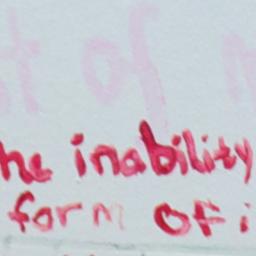 of
he inability
form of i